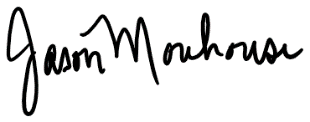 Jason Mouhouse